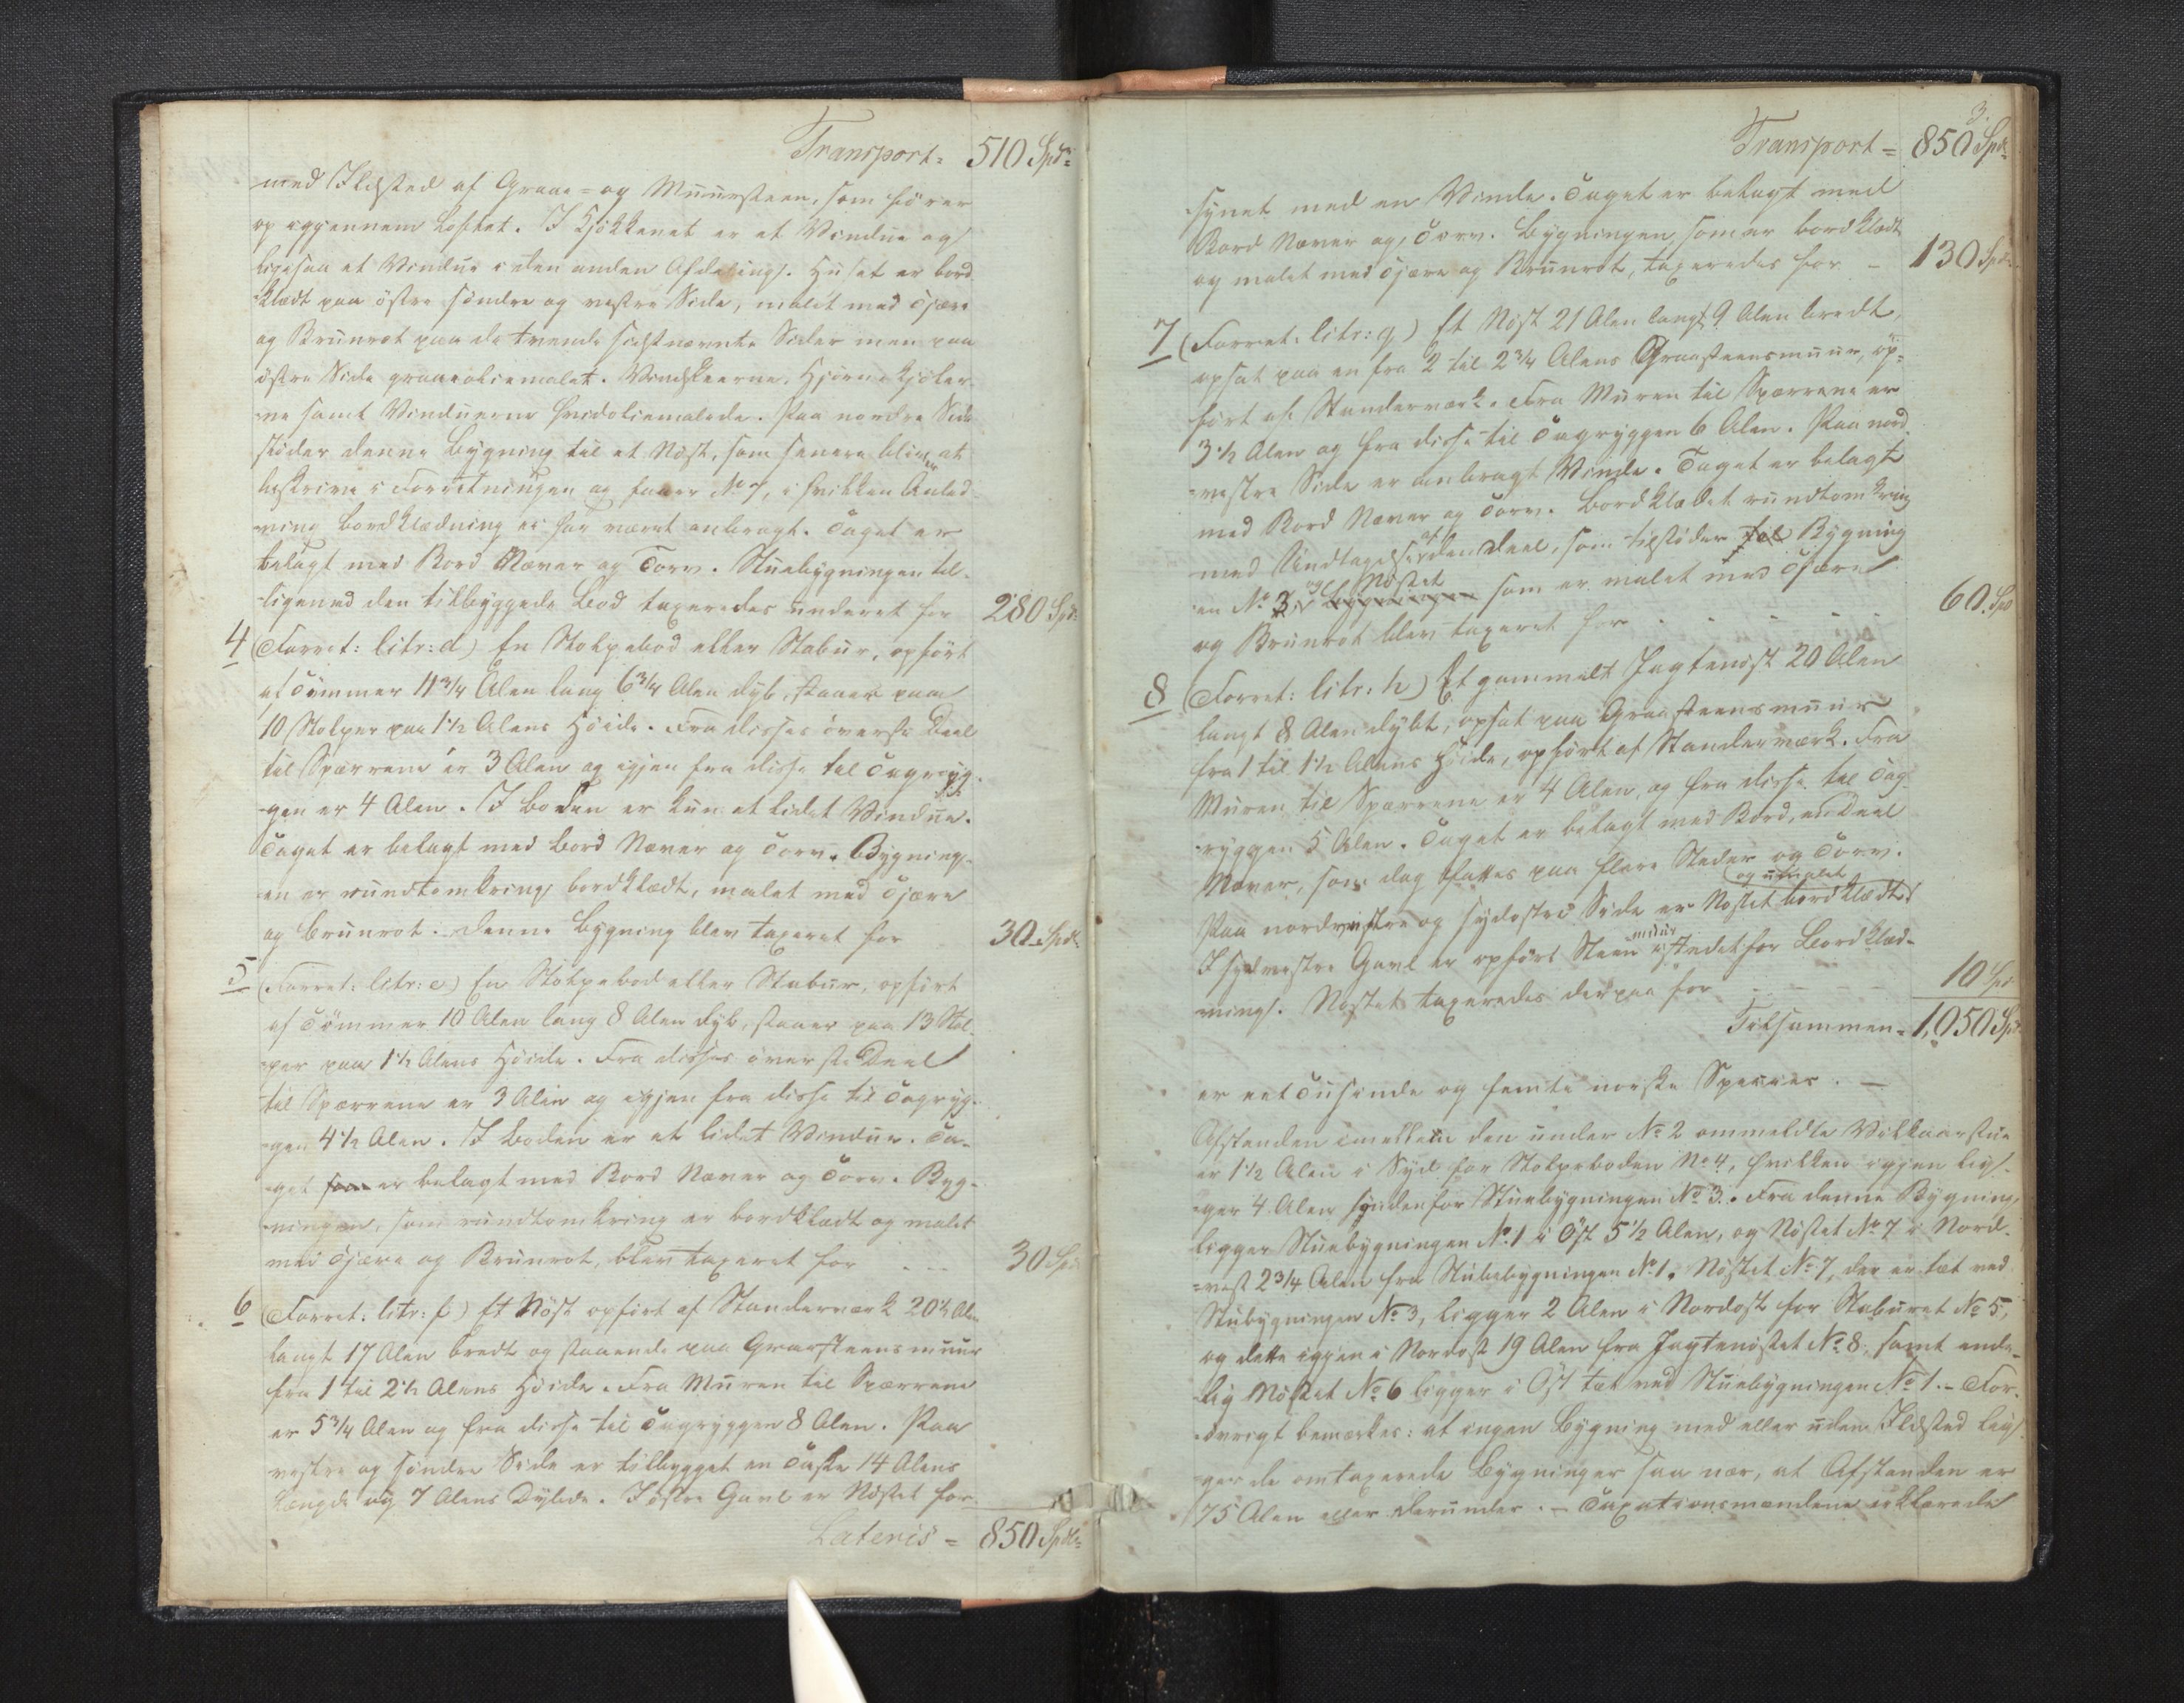 Transport = 510 Spd=
med Ildsted af Graae- og Muursteen, som fører
op igjennem Loftet. I Kjøkkenet er et Vindue og
ligesaa et Vindue i den anden Afdeling. Huset er bord-
klædt paa østre søndre og vestre Side, malet med Tjære
og Brunrøt paa de tvende sidstnævnte Sider men paa
østre Side graaoliemalet. Vindskeerne, Hjørnekjøler-
ne samt Vinduerne hvidoliemalede. Paa nordre Side
støder denne Bygning til et Nøst, som senere bliver at
beskrive i Forretningen og faaer No 7, i hvilken Anled-
ning Bordklædning ei har været anbragt. Taget er
belagt med Bord Næver og Torv. Stuebygningen til-
ligemed den tilbyggede Bod taxeredes underet for 280 Spd=
4 (Forret: litr: d) En Stolpebod eller Stabur, opført
af Tømmer 11 3/4 Alen lang 6 3/4 Alen dyb, staaer paa
10 Stolper paa 1 1/2 Alens Høide. Fra disses øverste Deel
til Spærrene er 3 Alen og igjen fra disse til Tagryg-
gen er 4 Alen. I Boden er kun et lidet Vindue.
Taget er belagt med Bord Næver og Torv. Bygning-
en er rundtomkring bordklædt, malet med Tjære
og Brunrøt. Denne Bygning blev taxeret for 30 Spd=
5 (Forret: litr: e) En Stolpebod eller Stabur, opført
af Tømmer 10 Alen lang 8 Alen dyb, staaer paa 13 Stol-
per paa 1 1/2 Alens Høide. Fra disses øverste Deel
til Spærrene er 3 Alen og igjen fra disse til Tagryg-
gen 4 1/2 Alen. I Boden er et lidet Vindue. Ta-
get som er belagt med Bord Næver og Torv. Byg-
ningen, som rundtomkring er bordklædt og malet
med Tjære og Brunrøt, blev taxeret for 30 Spd
6 (Forret: litr: f) Et Nøst opført af Standerværk 20 1/2 Alen
langt 17 Alen bredt og staaende paa Graasteensmuur
fra 1 til 2 1/2 Alens Høide. Fra Muren til Spærrene
er 5 3/4 Alen og fra disse til Tagryggen 8 Alen. Paa
vestre og søndre Side er tilbygget en Taske 14 Alens
Længde og 7 Alens Dybde. I østre Gavl er Nøstet for-
Lateris = 850 Spd=
3.
Transport = 850 Spd=
synet med en Vinde. Taget er belagt med
Bord Næver og Torv. Bygningen, som er bordklædt
og malet med Tjære og Brunrøt, taxeredes for 130 Spd=
7 (Forret: litr: g) Et Nøst 21 Alen langt, 9 Alen bredt,
opsat paa en fra 2 til 2 3/4 Alens Graasteensmuur, op-
ført af Standerværk. Fra Muren til Spærrene er
3 1/2 Alen og fra disse til Tagryggen 6 Alen. Paa nord-
vestre Side er anbragt Vinde. Taget er belagt
med Bord Næver og Torv. Bordklædet rundtomkring
med Undtagelse af den Deel, som tilstøder til Bygning
en No 3, og Nøstet som er malet med Tjære
og Brunrøt blev taxeret for 60 Spd
8 (Forret: litr: h) Et gammelt Jagtenøst 20 Alen
langt 8 Alen dybt, opsat paa Graasteensmuur
fra 1 til 1 1/2 Alens Høide, opført af Standerværk. Fra
Muren til Spærrene er 4 Alen, og fra disse til Tag-
ryggen 5 Alen. Taget er belagt med Bord, en Deel
Næver, som dog fattes paa flere Steder og Torv.
Paa nordvestre og sydostre Side er Nøstet bordklædt og umalet
I sydvestre Gavl er opført Steenmuur istedetfor Bordklæd-
ning. Nøstet taxeredes derpaa for 10 Spd
Tilsammen = 1,050 Spd
er eet Tusinde og femti norske Species. —
Afstanden imellem den under No 2 ommeldte Vilkaarstue
er 1 1/2 Alen i Syd for Stolpeboden No 4, hvilken igjen lig-
ger 4 Alen søndenfor Stuebygningen No 3. Fra denne Bygning
ligger Stuebygningen No 1 i Øst 5 1/2 Alen, og Nøstet No 7 i Nord-
vest 2 3/4 Alen fra Stuebygningen No 1. Nøstet No 7, der er tæt ved
Stubygningen No 3, ligger 2 Alen i Nordost for Staburet No 5,
og dette igjen i Nordost 19 Alen fra Jagtenøstet No 8, samt ende-
lig Nøstet No 6 ligger i Øst tæt ved Stuebygningen No 1. — For-
øvrigt bemærkes: at ingen Bygning med eller uden Ildsted lig-
ger de omtaxerede Bygninger saa nær, at Afstanden er
75 Alen eller derunder. — Taxationsmændene erklærede